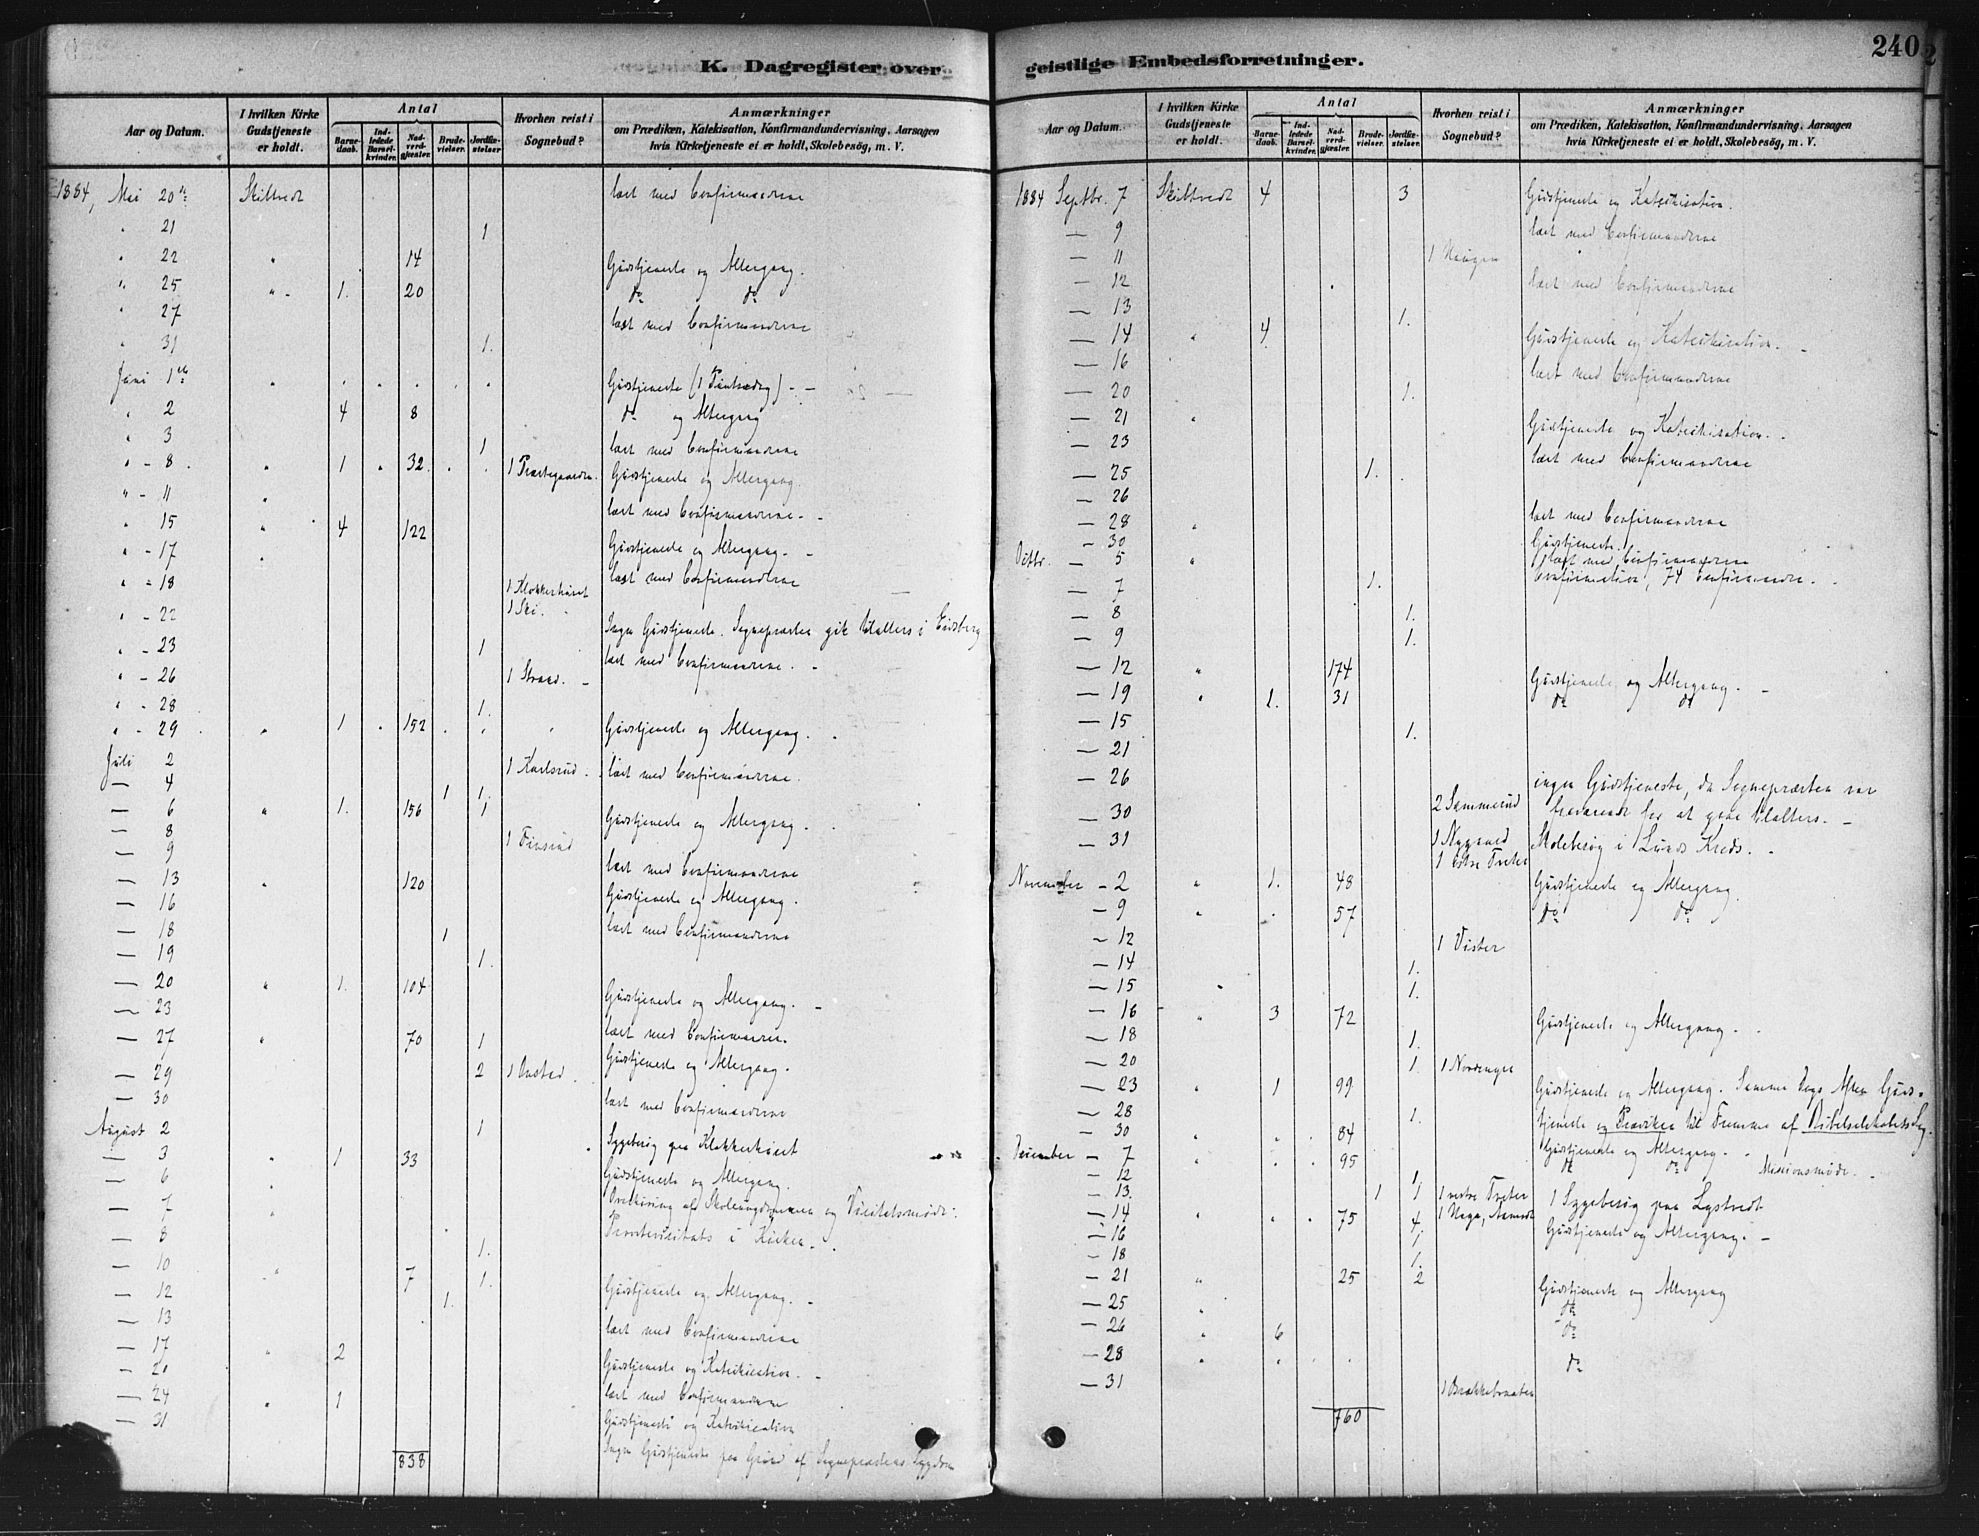 K. Dagregister over
Aar og Datum.
I hvilken Kirke Gudstjeneste er holdt.
Antal
Barne-daab.
Ind-ledede Barsel-kvinder.
Nad-verd-gjæster.
Brude-vielser.
Jordfæ-stelser
Hvorhen reist i Sognebud?
Anmærkninger
om Prædiken, Katekisation, Konfirmandundervisning, Aarsagen
hvis Kirketjeneste ei er holdt, Skolebesög, m. V.
1884, Mai 20de Skibtvedt læst med Confirmanderne
" 21 1
" 22 " 14 Gudstjeneste og Altergang.
" 25 " 1. 20 do do
" 27 læst med Confirmanderne
" 31 1.
Juni 1ste " Gudstjeneste (1 Pintsedag) -
" 2 4 8 do og Altergang
" 3 1 læst med Confirmanderne
" - 8 " 1 32 1 Præstegaarden. Gudstjeneste og Altergang.
" - 11 " læst med Confirmanderne.
" 15 " 4 122 Gudstjeneste og Altergang.
" - 17 " læst med Confirmanderne
" - 18 1 Klokkerhuset
" - 22 1 Ski. Ingen Gudstjeneste. Sognepræsten gik til alters i Eidsberg
" - 23 1 læst med Confirmanderne.
" - 26 1 Straad.
" - 28 1.
" - 29 " 1 152 Gudstjeneste og Altergang.
Juli 2 1 Karlsrud. læst med Confirmanderne.
— 4 1 1.
— 6 " 1. 156 1 Gudstjeneste og Altergang.
— 8 1 Finsrud
— 9 læst med Confirmanderne
— 13 " 120 Gudstjeneste og Altergang.
— 16 læst med Confirmanderne
— 18 1
— 19 1.
— 20 " 1. 104 Gudstjeneste og Altergang.
— 23 læst med Confirmander.
— 27 " 70 1 Gudstjeneste og Altergang.
— 29 2 1 Onstad.
— 30 læst med Confirmanderne
August 2 1 Sygebesøg paa Klokkerhuset
— 3 " 1 33 Gudstjeneste og Altergang.
— 6 " Overhøring af Skoleungdommen og Visitatsmøde.
— 7 " Provstevisitats i Kirken.
— 8 1.
— 10 " 7 1. Gudstjeneste og Altergang.
— 12 1.
— 13 læst med Confirmanderne
— 17 " 2 Gudstjeneste og Katechisation.
— 20 læst med Confirmanderne
— 24 " 1 Gudstjeneste og Katechisation
— 31 Ingen Gudstjeneste paa Grund af Sognepræstens Sygdom
838
geistlige Embedsforretninger.
240
Aar og Datum.
I hvilken Kirke Gudstjeneste er holdt.
Antal
Barne-daab.
Ind-ledede Barsel-kvinder.
Nad-verd-gjæster.
Brude-vielser.
Jordfæ-stelser.
Hvorhen reist i Sognebud?
Anmærkninger
om Prædiken, Katekisation, Konfirmandundervisning, Aarsagen
hvis Kirketjeneste ei er holdt, Skolebesög, m. V.
1884 Septbr. 7 Skibtvedt 4 3 Gudstjeneste og Katechisation.
— 9 læst med Confirmanderne
— 11 1 Haugen
— 12 læst med Confirmanderne
— 13 1.
— 14 " 4 Gudstjeneste og Katechisation.
— 16 læst med Confirmanderne
— 20 1.
— 21 " Gudstjeneste og Katechisation.
— 23 læst med Confirmanderne
— 25 1.
— 26 læst med Confirmanderne
— 28 " Gudstjeneste.
— 30 læst med Confirmanderne
Octbr. — 5 " Confirmation, 74 Confirmander.
— 7 1.
— 8 1.
— 9 1.
— 12 " 174 Gudstjeneste og Altergang.
— 19 " 1. 31 do do
— 15 1.
— 21
— 26 ingen Gudstjeneste, da Sognepræsten var
— 30 2 Sammerud fraværende for at gaae til alters.
— 31 1 Nygaard Skolebesøg i Lunds Kreds.
1 østre Treter
November - 2 " 1. 48 Gudstjeneste og Altergang
— 9 " 57 do do
— 12 1 Vister
— 14 1.
— 15 1.
— 16 " 3 72 Gudstjeneste og Altergang.
— 18 1.
— 20 1. 1 Nordengre
— 23 " 1 99 Gudstjeneste og Altergang. Samme Dags Aften Guds-
— 28 1. tjeneste og Prædiken til Fremme af Bibelselskabets Sag.
— 30 " 84 Gudstjeneste og Altergang.
December — 7 " 95 do do Missionsmøde.
— 12 1.
— 13. 1 1 1 vestre Treter 1 Sygebesøg paa Lystvedt
— 14 " 75 4 1 Haga, Gudstjeneste og Altergang.
— 16 1
— 18 1.
— 21 " 25 2 Gudstjeneste og Altergang
— 25 " do
— 26 " 6 do
— 28 " do
— 31 1 Brækkebraaten
760